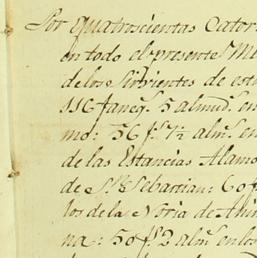 Por quatrosientas Cator
en todo el presente Me
de los Sirvientes de est
116 faneg.s 5 almud.s en
mo: 56 f.s 7½ alm.s en
de las Estancias Alamo
de S.n Sebastian: 60 f
los de la Noria de Ani
na: 50 f.s 2 alm.s en los